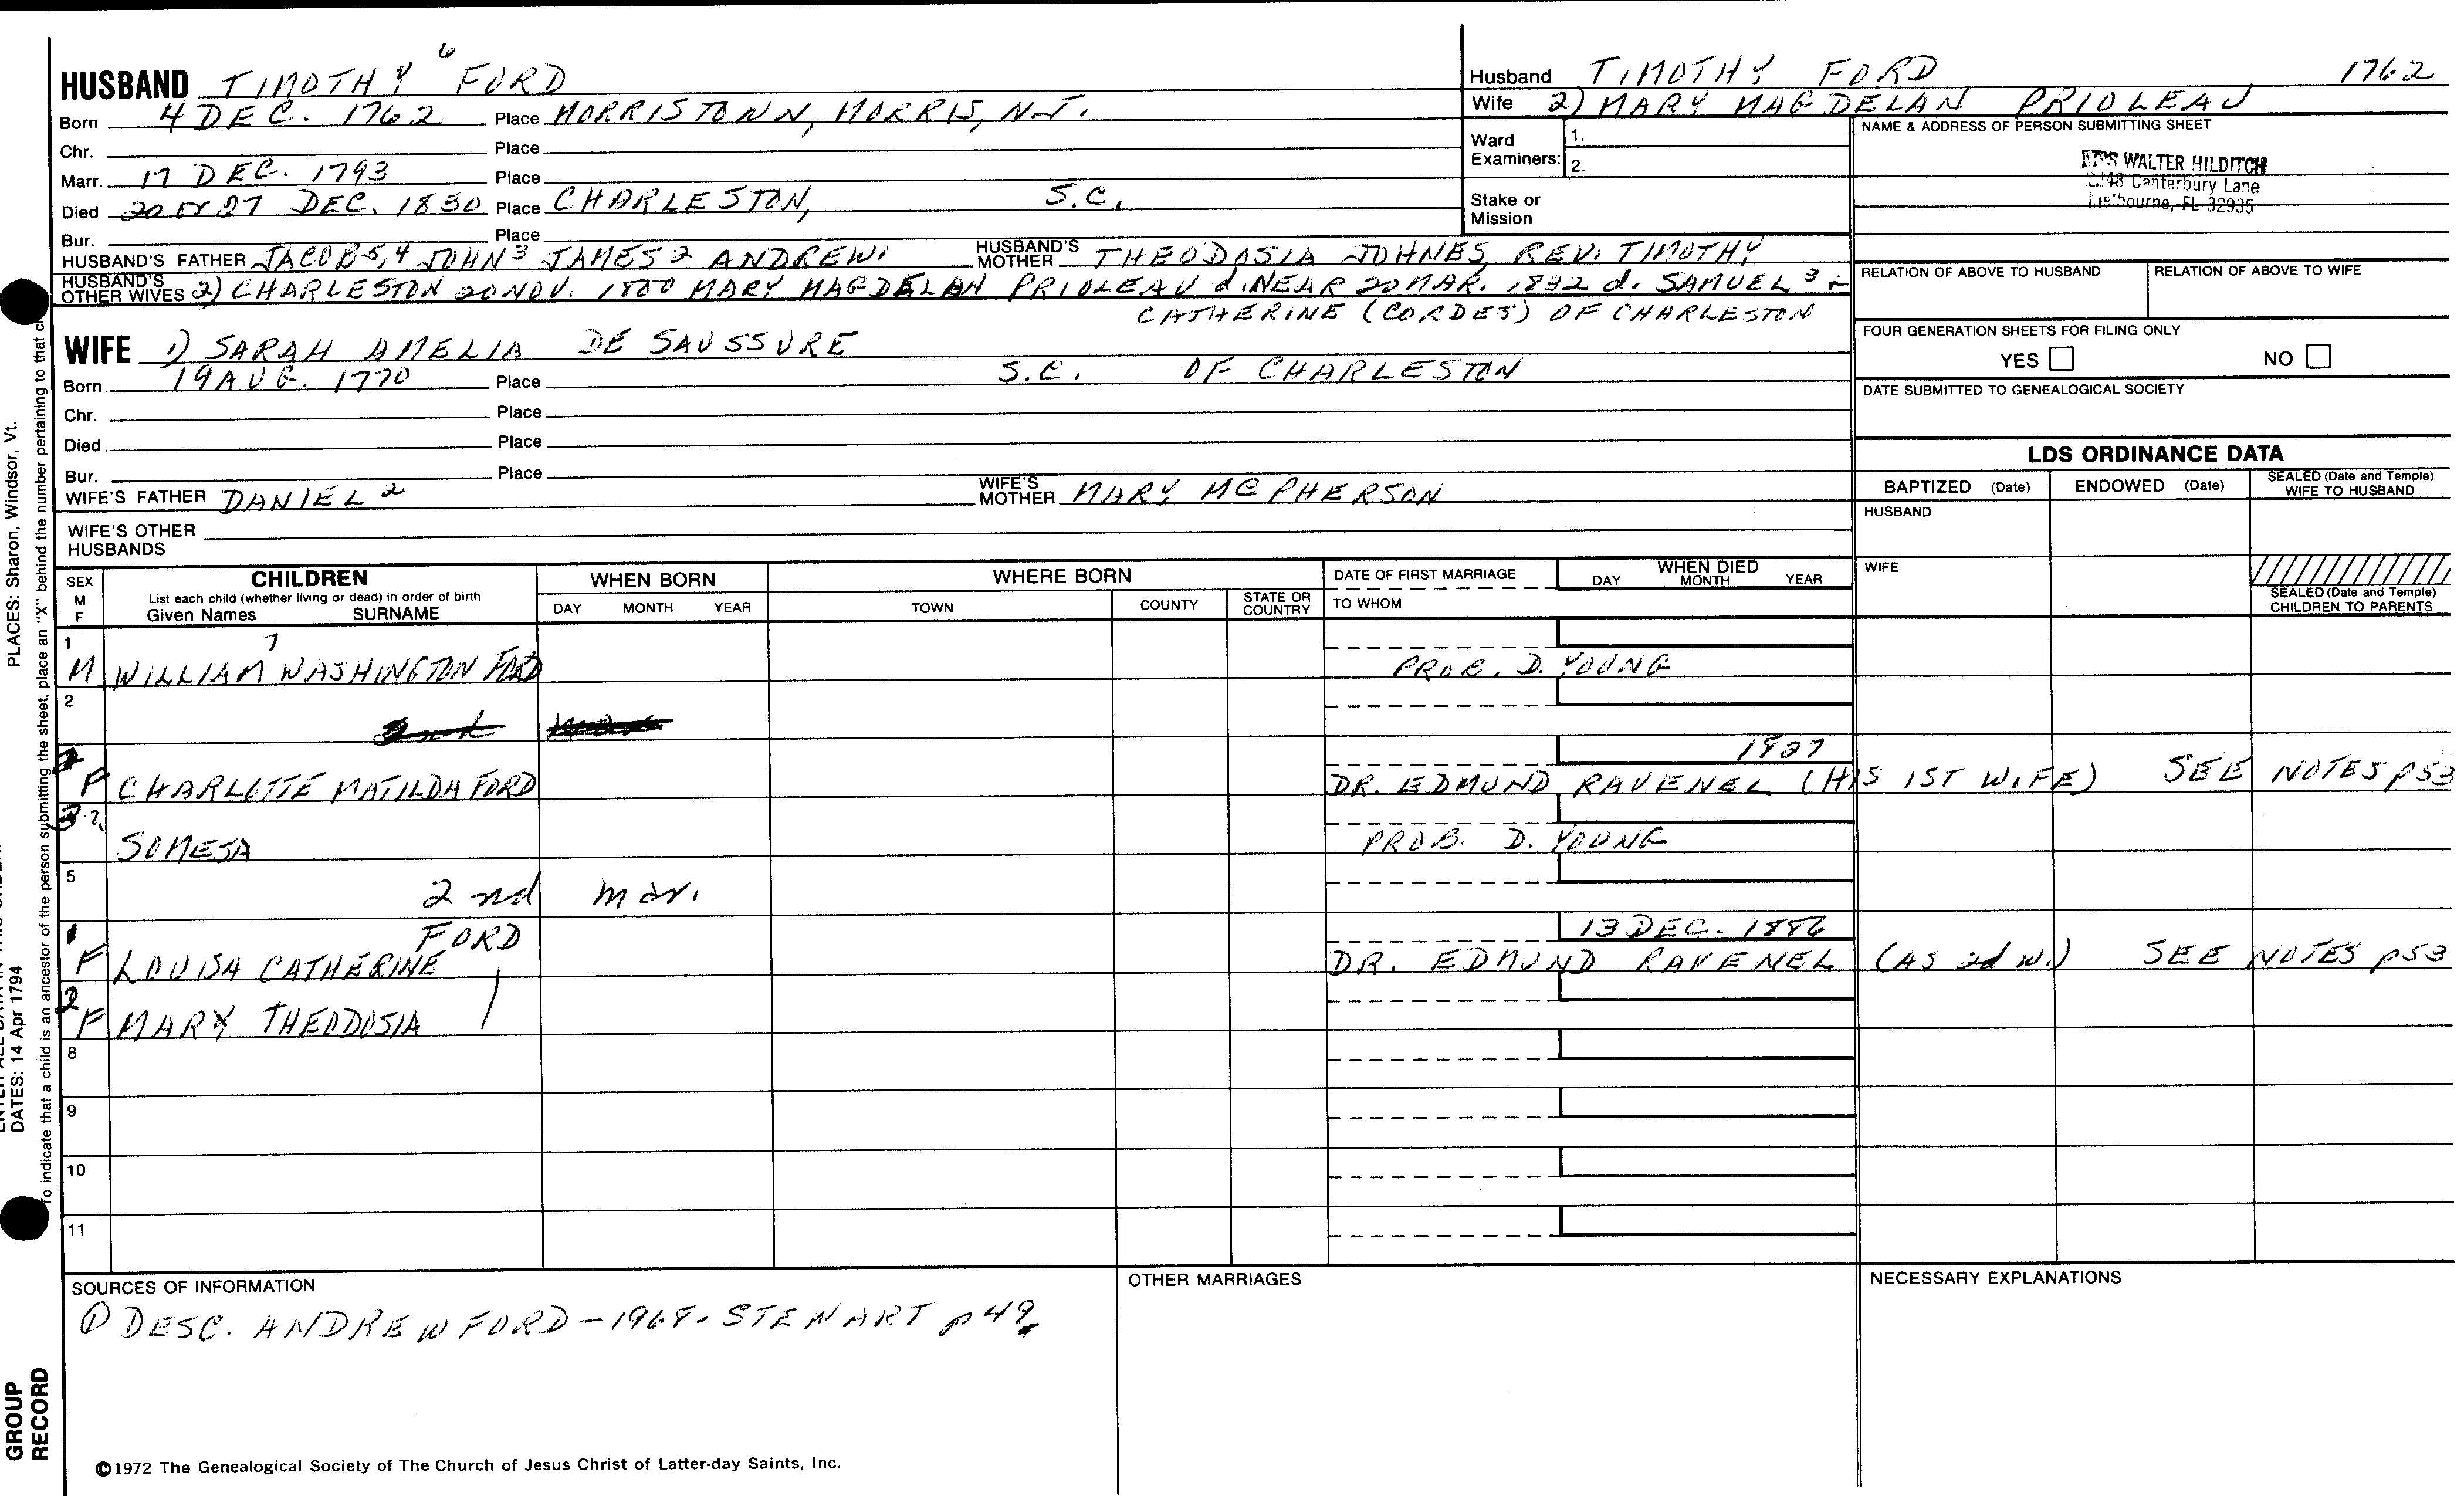 HUSBAND TIMOTHY 6 FORD
Born 4 DEC. 1762 Place MORRISTOWN, MORRIS, N.J.
Chr. Place
Marr. 17 DEC. 1793 Place
Died 20 or 27 DEC. 1830 Place CHARLESTON, S.C.
Bur. Place
HUSBAND'S FATHER JACOB 5, 4 JOHN 3 JAMES 2 ANDREW 1 HUSBAND'S MOTHER THEODOSIA JOHNES, REV. TIMOTHY
HUSBAND'S OTHER WIVES 2) CHARLESTON 20 NOV. 1800 MARY MAGDELAN PRIOLEAU d. NEAR 20 MAR. 1832 d. SAMUEL 3 +
CATHERINE (CORDES) OF CHARLESTON
WIFE 1) SARAH AMELIA DE SAUSSURE
Born 19 AUG. 1770 Place S.C. OF CHARLESTON
Chr. Place
Died Place
Bur. Place
WIFE'S FATHER DANIEL 2 WIFE'S MOTHER MARY MCPHERSON
WIFE'S OTHER HUSBANDS
Husband TIMOTHY FORD 1762
Wife 2) MARY MAGDELAN PRIOLEAU
Ward Examiners: 1.
2.
Stake or Mission
NAME & ADDRESS OF PERSON SUBMITTING SHEET
WALTER HILDITCH
Canterbury Lane
FL 32935
RELATION OF ABOVE TO HUSBAND RELATION OF ABOVE TO WIFE
FOUR GENERATION SHEETS FOR FILING ONLY
YES NO
DATE SUBMITTED TO GENEALOGICAL SOCIETY
LDS ORDINANCE DATA
BAPTIZED (Date) ENDOWED (Date) SEALED (Date and Temple) WIFE TO HUSBAND
HUSBAND
WIFE
SEALED (Date and Temple) CHILDREN TO PARENTS
SEX M F CHILDREN WHEN BORN WHERE BORN DATE OF FIRST MARRIAGE WHEN DIED
List each child (whether living or dead) in order of birth
Given Names SURNAME DAY MONTH YEAR TOWN COUNTY STATE OR COUNTRY TO WHOM DAY MONTH YEAR
1 7
M WILLIAM WASHINGTON FORD PROB. D. YOUNG
2
1827
2 F CHARLOTTE MATILDA FORD DR. EDMUND RAVENEL (HIS 1ST WIFE) SEE NOTES p53
3 ?
SOMESA PROB. D. YOUNG
5
2nd mar.
1 FORD 13 DEC. 1886
F LOUISA CATHERINE DR. EDMUND RAVENEL (AS 2d w.) SEE NOTES p53
2
F MARY THEODOSIA
8
9
10
11
SOURCES OF INFORMATION OTHER MARRIAGES NECESSARY EXPLANATIONS
① DESC. ANDREW FORD - 1968 - STEWART p 49
©1972 The Genealogical Society of The Church of Jesus Christ of Latter-day Saints, Inc.
PLACES: Sharon, Windsor, Vt.
DATES: 14 Apr 1794
To indicate that a child is an ancestor of the person submitting the sheet, place an "X" behind the number pertaining to that
GROUP
RECORD